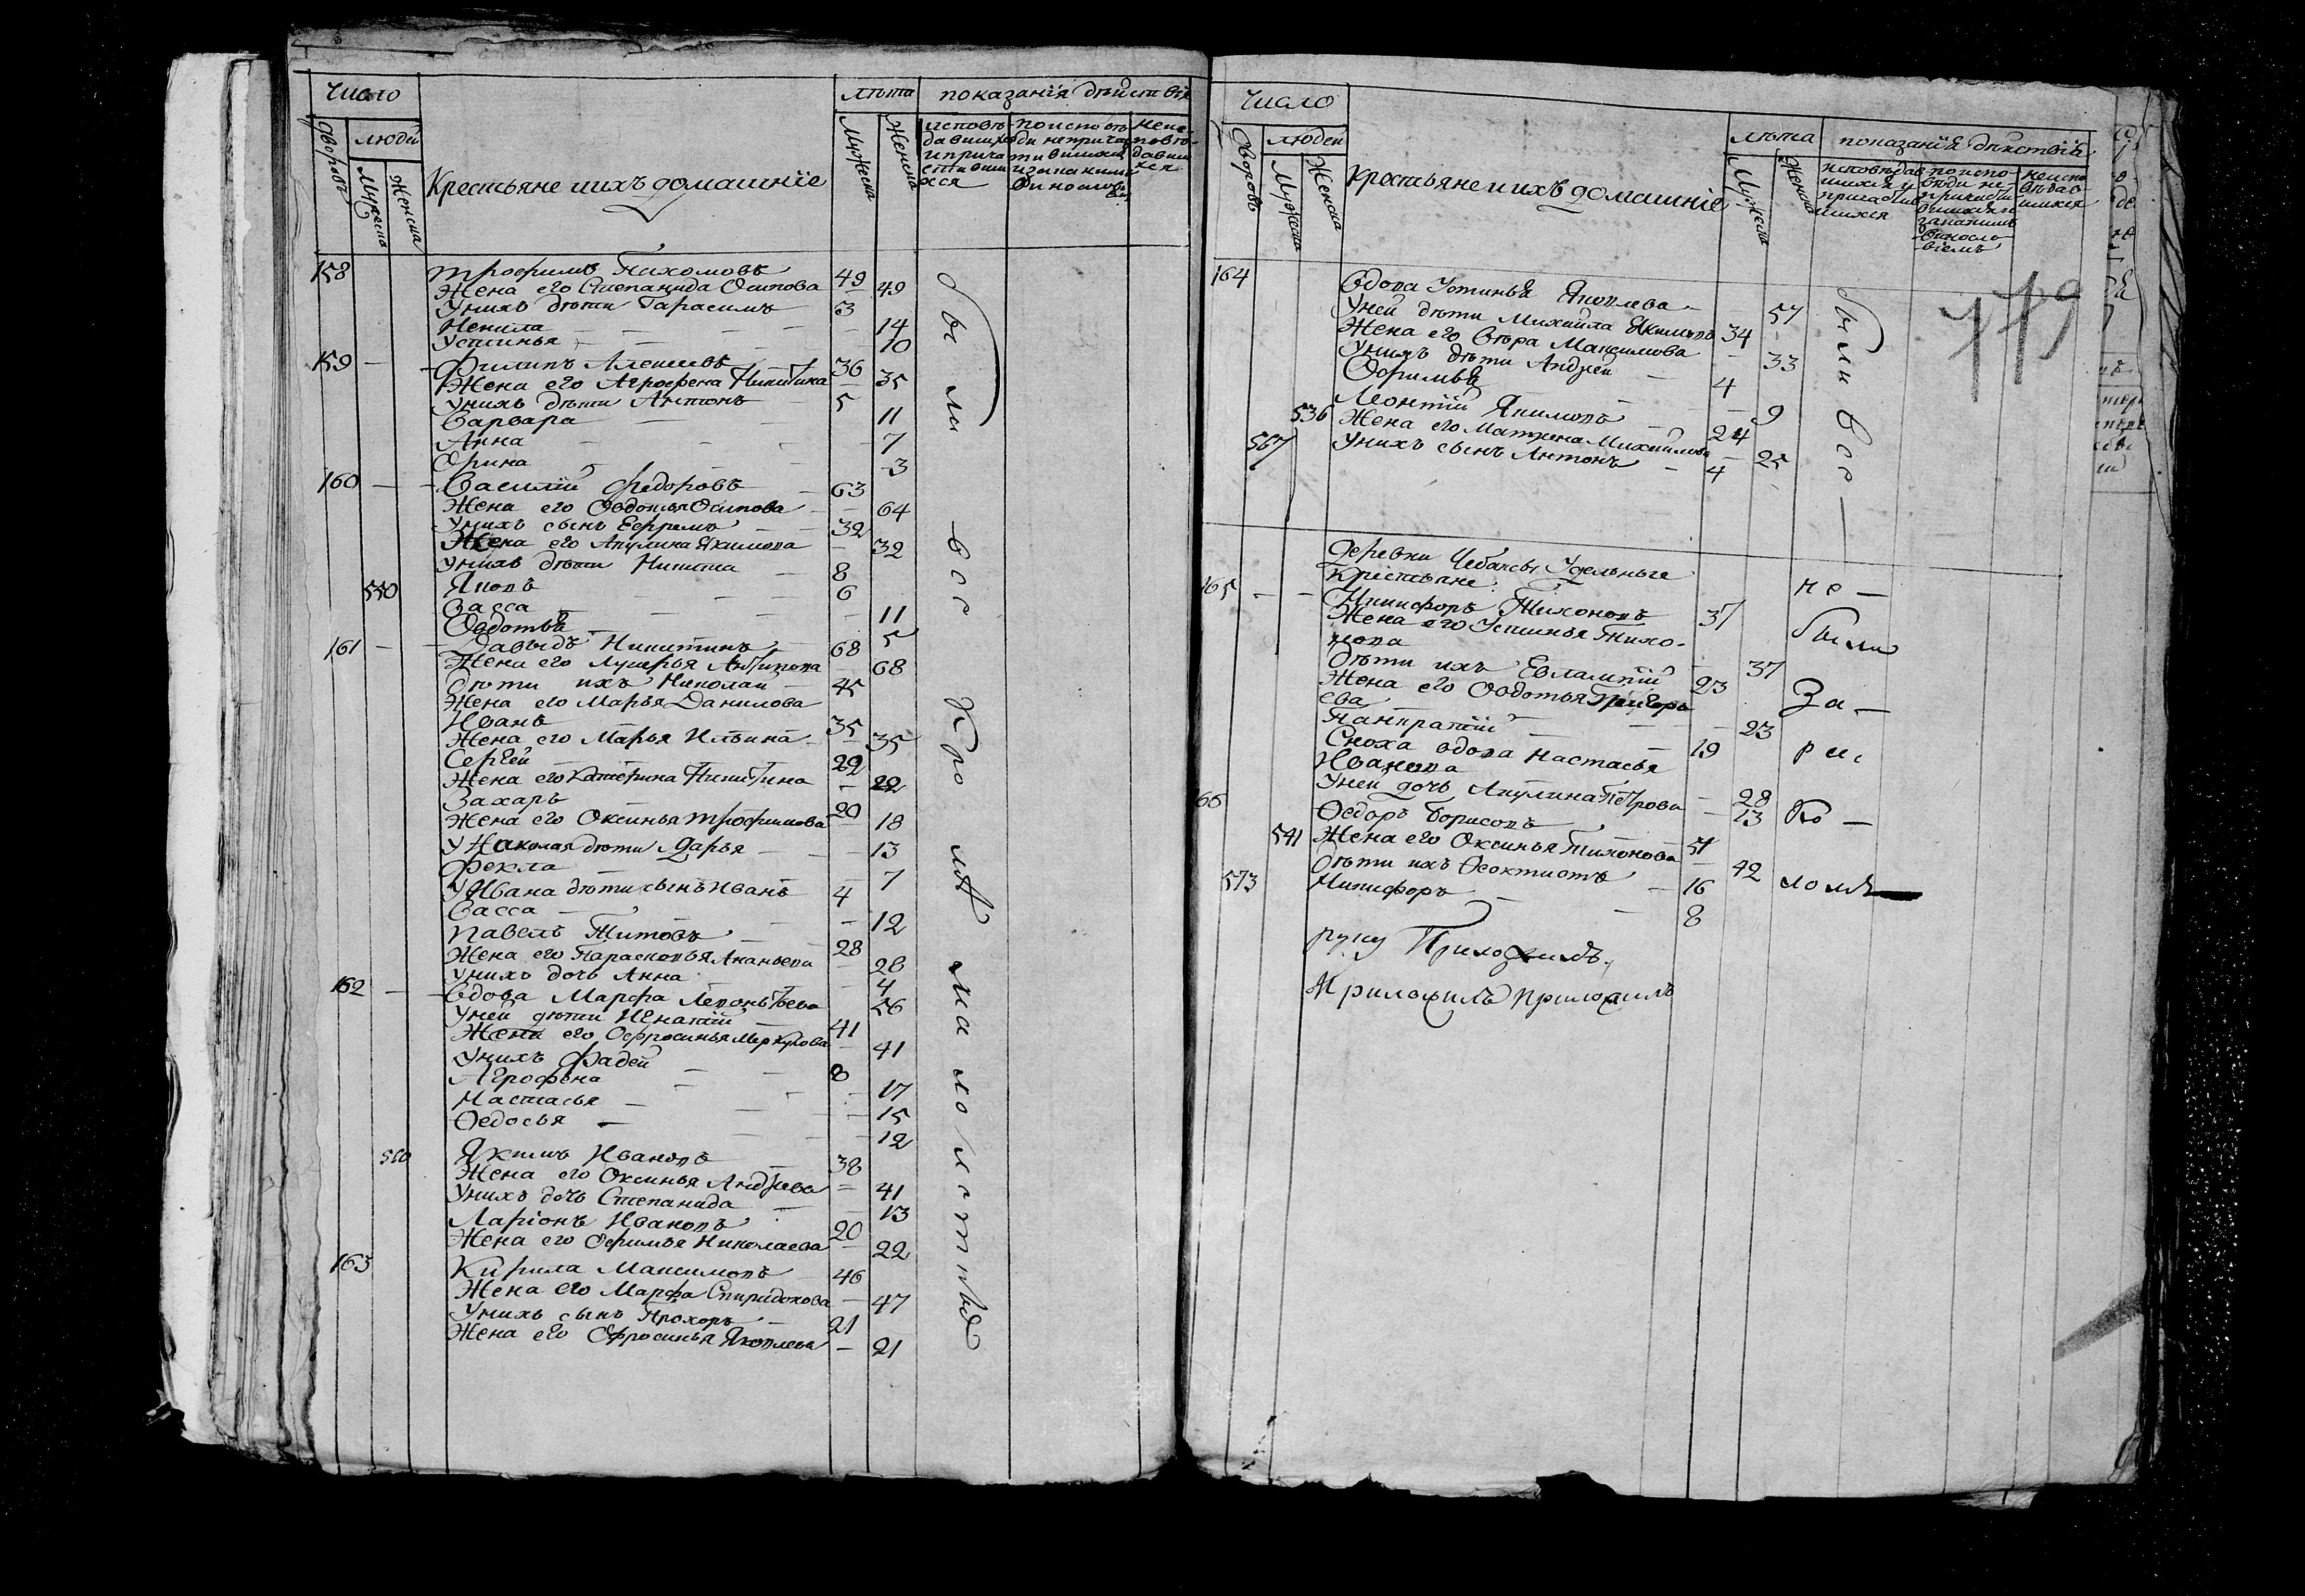 Число
лѣта показанїя дѣйствїя
дворовъ
людей
Мужеска
Женска
Крестьяне и ихъ домашнїе
Мужеска
Женска
исповѣ-
давшихся
и прича
стивши
хся
по исповѣ
ди неприча
тившихся
неис
повѣ-
давши
хся
158
Трофимъ Пахомовъ 49
Жена его Степанида Осипова — 49
У нихъ дѣти Гарасимъ 3
Ненила — 14
Устинья — 10
159 — Филипъ Алексеевъ — 36
Жена его Агрофена Никитина — 35
У нихъ дѣти Антонъ 5
Варвара — 11
Анна — 7
Орина — 3
160 — Василїй Федоровъ — 63
Жена его Овдотья Осипова — 64
У нихъ сынъ Ефремъ — 32
Жена его Акулина Якимова — 32
У нихъ дѣти Никита — 8
550 Яковъ — 6
Васса — 11
Овдотья — 5
161 — Давыдъ Никитинъ — 68
Жена его Лукерья Антипова — 68
Дѣти ихъ Николай — 45
Жена его Марья Данилова
Иванъ 35
Жена его Марья Ильина — 35
Сергей — 22
Жена его Катерина Никитина — 22
Захаръ 20
Жена его Оксинья Трофимова — 18
У Николая дѣти Дарья — 13
Фекла — 7
У Ивана дѣти сынъ Иванъ 4
Васса — 12
Павелъ Титовъ 28
Жена его Парасковья Ананьева — 28
У нихъ дочь Анна — 4
162 — Вдова Марфа Леонтьева 56
У ней дѣти Игнатїй 41
Жена его Офросинья Меркулова — 41
У нихъ Фадей 8
Агрофена — 17
Настасья — 15
Ѳедосья — 12
Якимъ Ивановъ — 38
Жена его Оксинья Андреева — 41
У нихъ дочь Степанида — 13
Ларїонъ Ивановъ 20
Жена его Офимья Николаева — 22
163 Кирила Максимовъ 46
Жена его Марфа Спиридонова — 47
У нихъ сынъ Прохоръ — 21
Жена его Офросинья Яковлева — 21
были все кромѣ малолетныхъ
Число
лѣта показанїя дѣйствїя
Дворовъ
людей
Мужеска
Женска
Крестьяне и ихъ домашнїе
Мужеска
Женска
исповѣдав
шихся и
причастив
шихся
по испо-
вѣди не-
неиспо
вѣдав-
шихся
164
Вдова Устинья Яковлева — 57
У ней дѣти Михайла Якимовъ 34
Жена его Вѣра Максимова — 33
У нихъ дѣти Андрей — 4
Офимья — 9
Леонтїй Якимовъ — 24
536 Жена его Матрена Михайлова — 25
567 У нихъ сынъ Антонъ — 4
были все —
Деревни Чебаксы Удельные
Крестьяне
165 — Никифоръ Тихоновъ 37
Жена его Устинья Тихо-
нова — 37
Дѣти ихъ Евлампїй 23
Жена его Овдотья Григорь
ева — 23
Панкратїй — 19
Сноха вдова Настасья
Иванова — 28
У ней дочь Акулина Петрова — 13
66 Ѳедоръ Борисовъ 51
541 Жена его Оксинья Тихонова — 42
573 Дѣти ихъ Ѳеоктистъ — 16
Никифоръ — 8
не —
были
За —
рас
Ко —
ломъ
руку Приложилъ
Приложилъ приложилъ